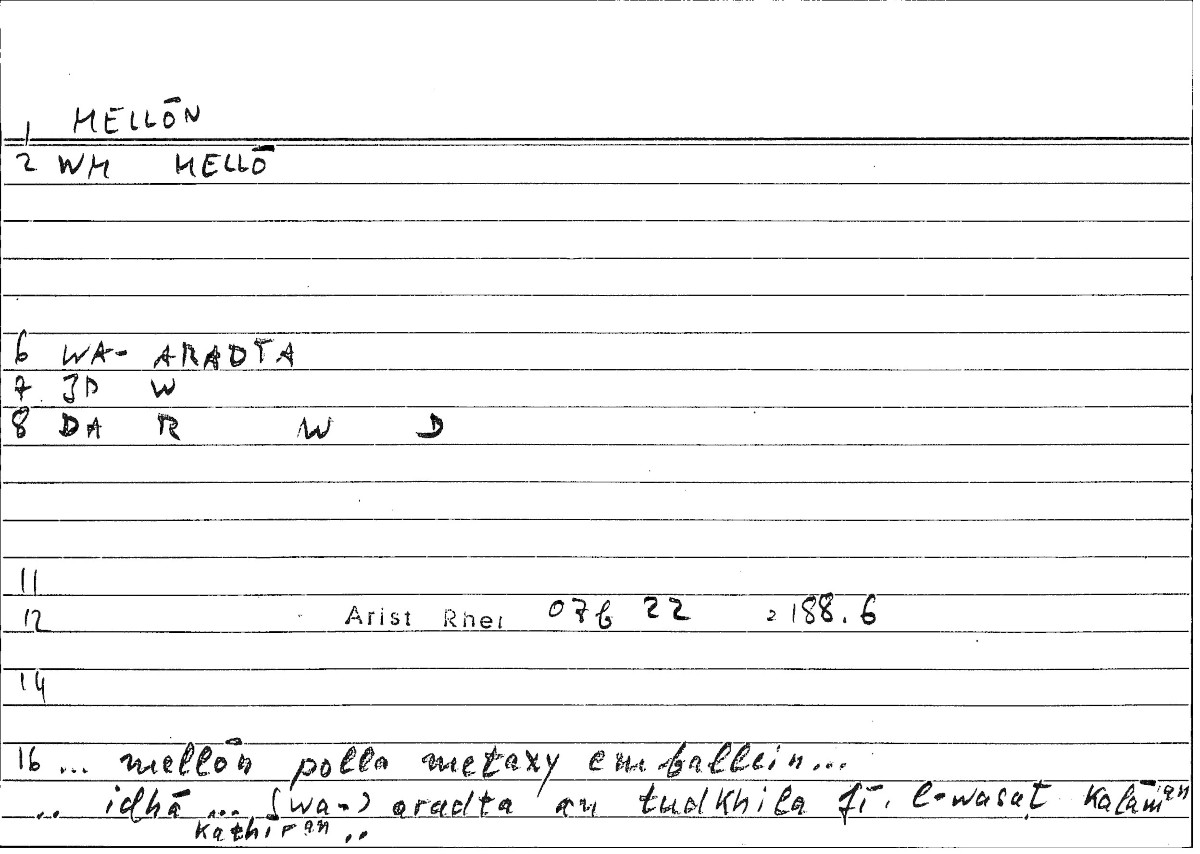 1 MELLŌN
2 WM MELLŌ
6 WA- ARADTA
7 JD W
8 DA R W D
11
12 Arist Rhet 07b 22 = 188.6
14
16 ... mellōn polla metaxy emballein...
.. idhā ... (wa-) aradta an tudkhila fī. l-wasaṭ kalāman
kathīran ..